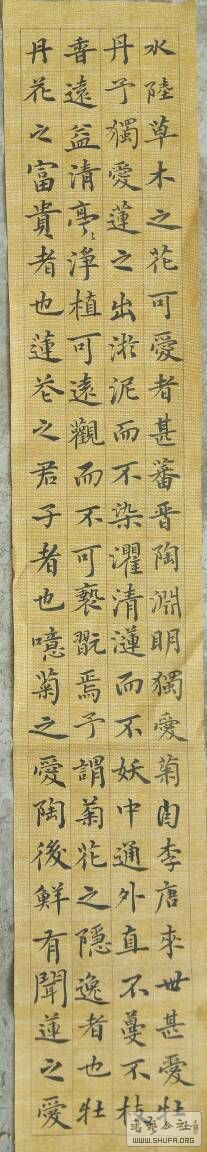 水陸草木之花可愛者甚蕃晋陶淵明獨愛菊自李唐来世甚愛牡
丹予獨愛蓮之出淤泥而不染濯清漣而不妖中通外直不蔓不枝
香遠益清亭〻淨植可遠觀而不可褻翫焉予謂菊花之隱逸者也牡
丹花之富貴者也蓮花之君子者也噫菊之愛陶後鮮有聞蓮之愛
書法公社
WWW.SHUFA.ORG